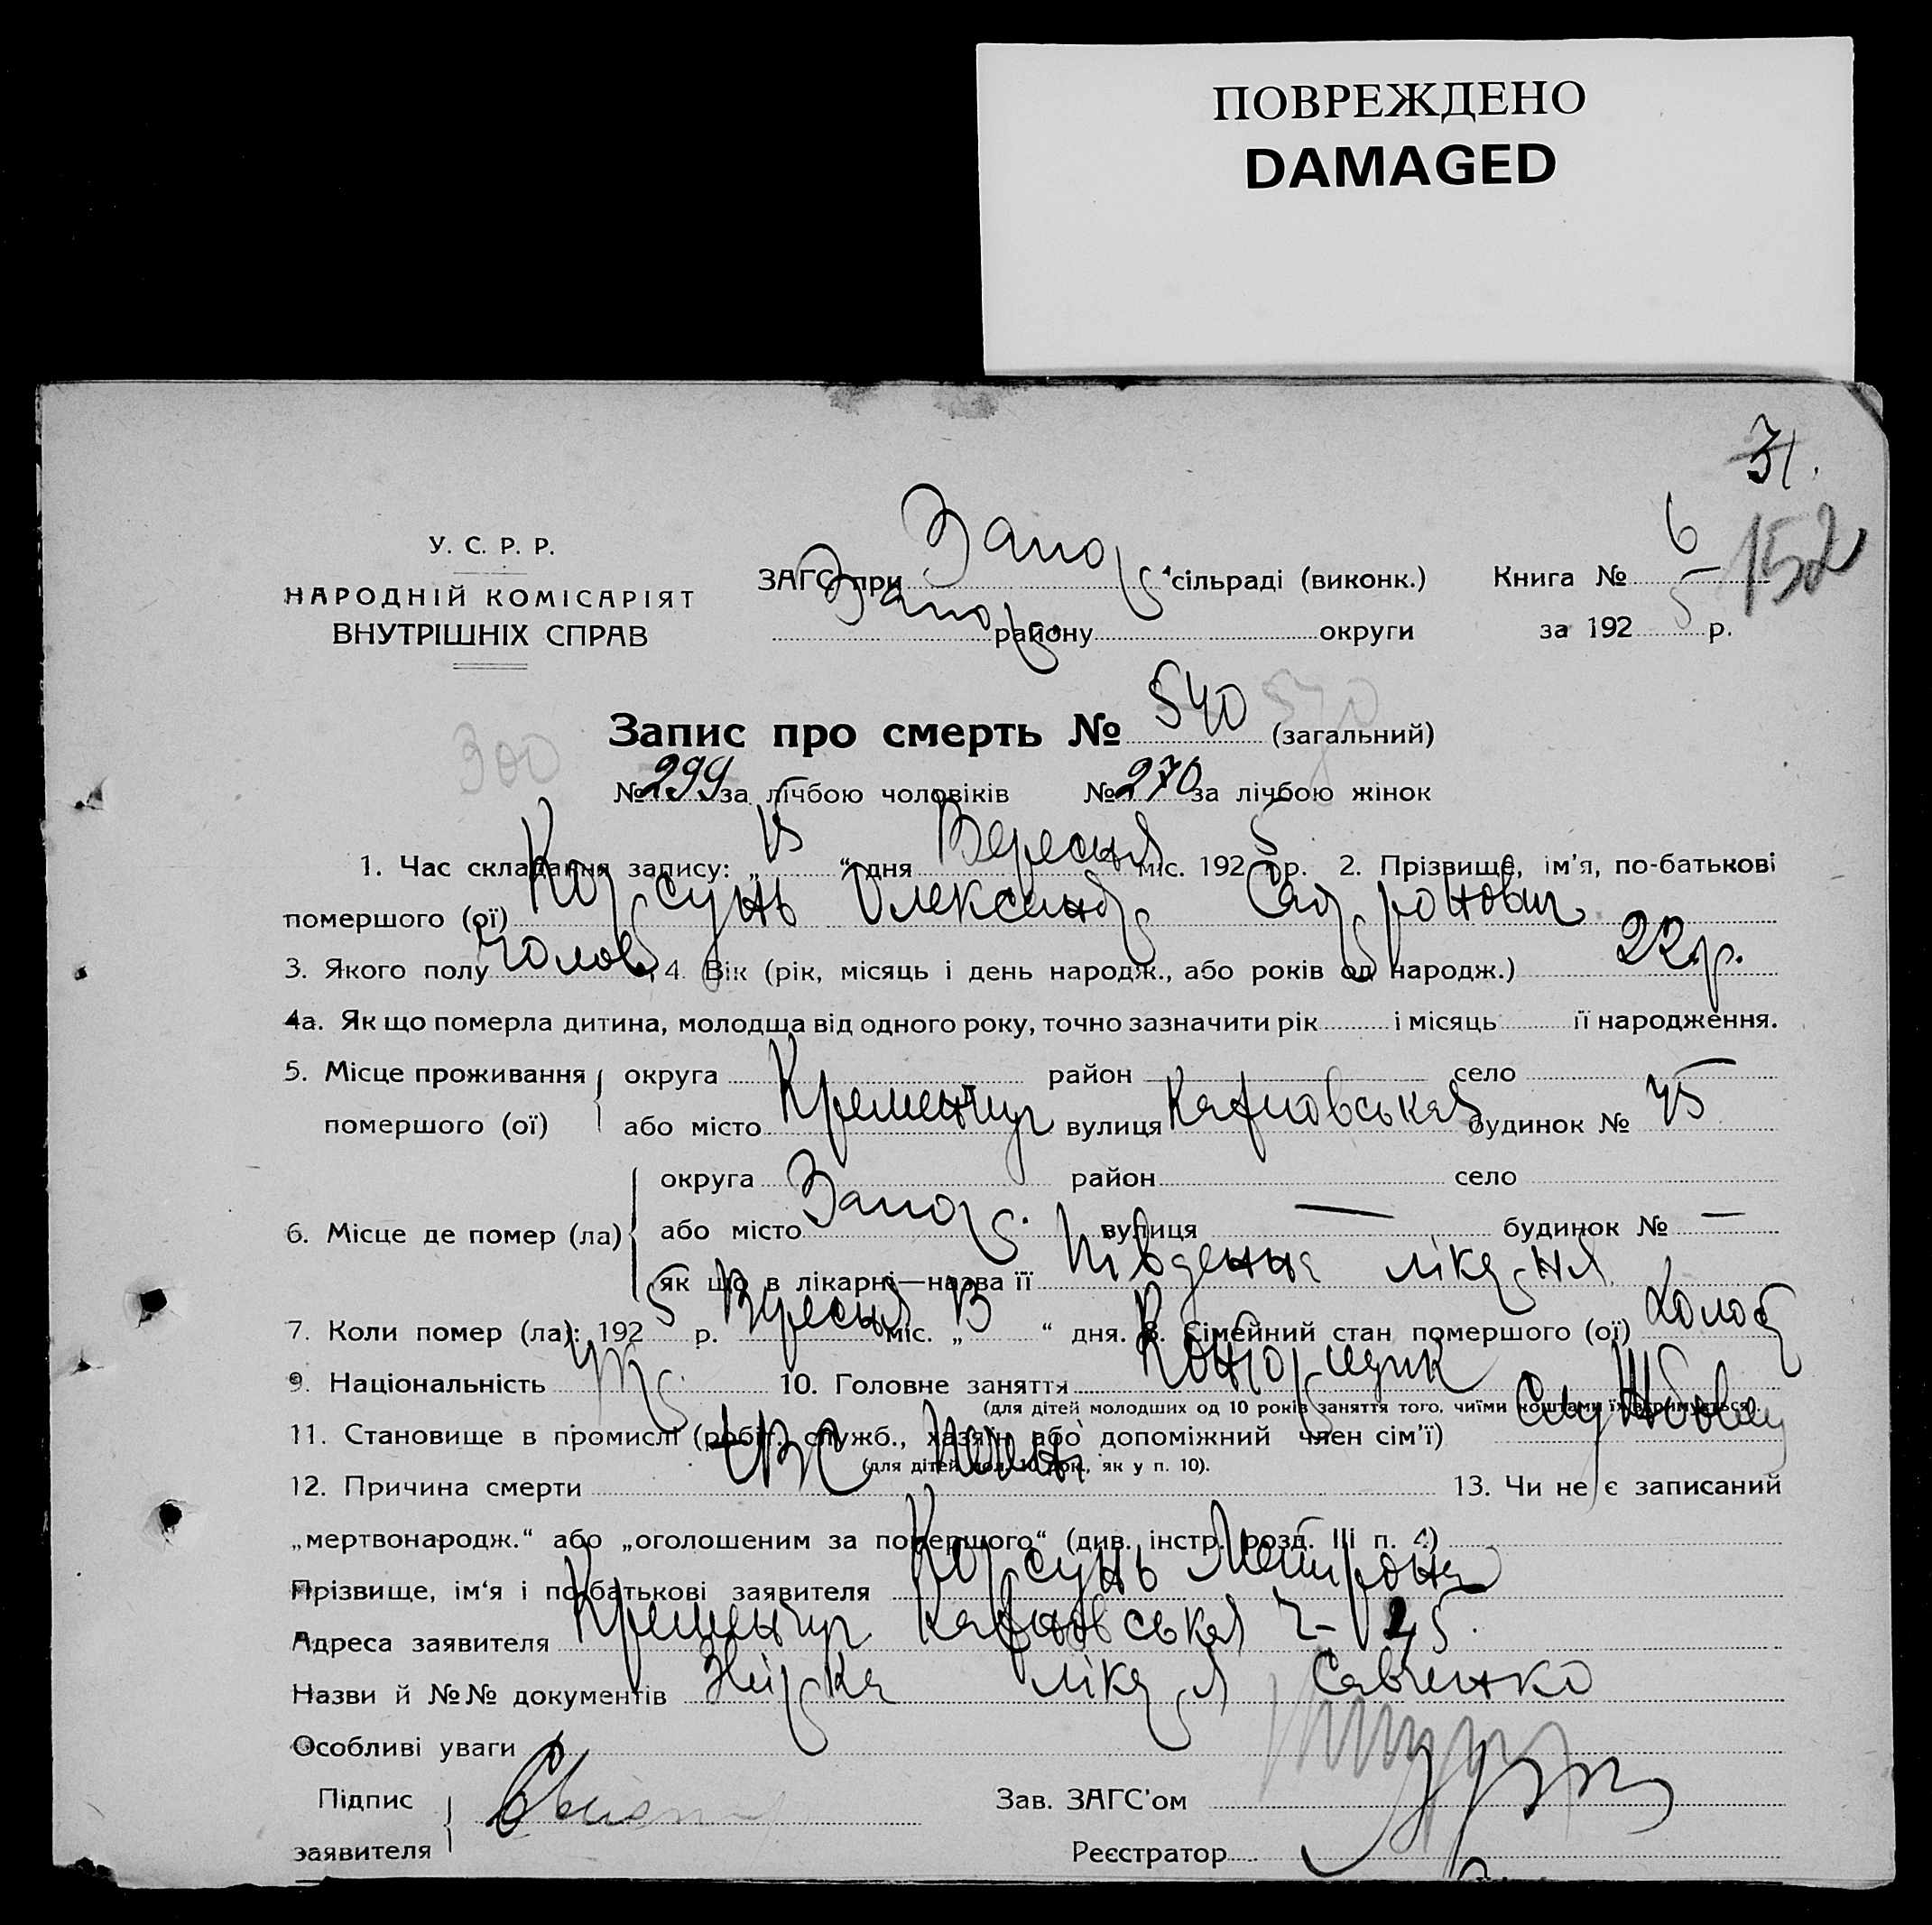 ПОВРЕЖДЕНО
DAMAGED
31.
У. С. Р. Р.
НАРОДНІЙ КОМІСАРІЯТ
ВНУТРІШНІХ СПРАВ
ЗАГС при Запор. сільраді (виконк.) Книга № 6 152
Запор. району округи за 192 5 р.
Запис про смерть № 540 570 (загальний)
300 № 299 за лічбою чоловіків № 270 за лічбою жінок
1. Час складання запису: „ 15 “ дня Вересня міс. 192 5 р. 2. Прізвище, ім’я, по-батькові
помершого (ої) Корсунь Олександр
3. Якого полу Чолов. 4. Вік (рік, місяць і день народж., або років од народж.) 22 р.
4а. Як що померла дитина, молодша від одного року, точно зазначити рік і місяць її народження.
5. Місце проживання округа район село
помершого (ої) або місто Кременчуг вулиця будинок № 45
округа район село
6. Місце де помер (ла) або місто Запор. вулиця — будинок № —
як що в лікарні—назва її Південна лікарня
7. Коли помер (ла): 192 5 р. Вересня міс. „ “ дня. 8. Сімейний стан помершого (ої) Холост
9. Національність Укр. 10. Головне заняття Конторщик
(для дітей молодших од 10 років заняття того, чиїми коштами їх утримується).
11. Становище в промислі (робіт., служб., хазяїн або допоміжний член сім’ї) Службовец
(для дітей мол. 10 рок., як у п. 10).
12. Причина смерти ТВС 13. Чи не є записаний
„мертвонародж.“ або „оголошеним за помершого“ (див. інстр. розд. III п. 4)
Прізвище, ім‘я і по-батькові заявителя Корсунь Митрона
Адреса заявителя Кременчуг
Назви й №№ документів лікаря Савченко
Особливі уваги
Підпис
заявителя
Зав. ЗАГС’ом
Реєстратор